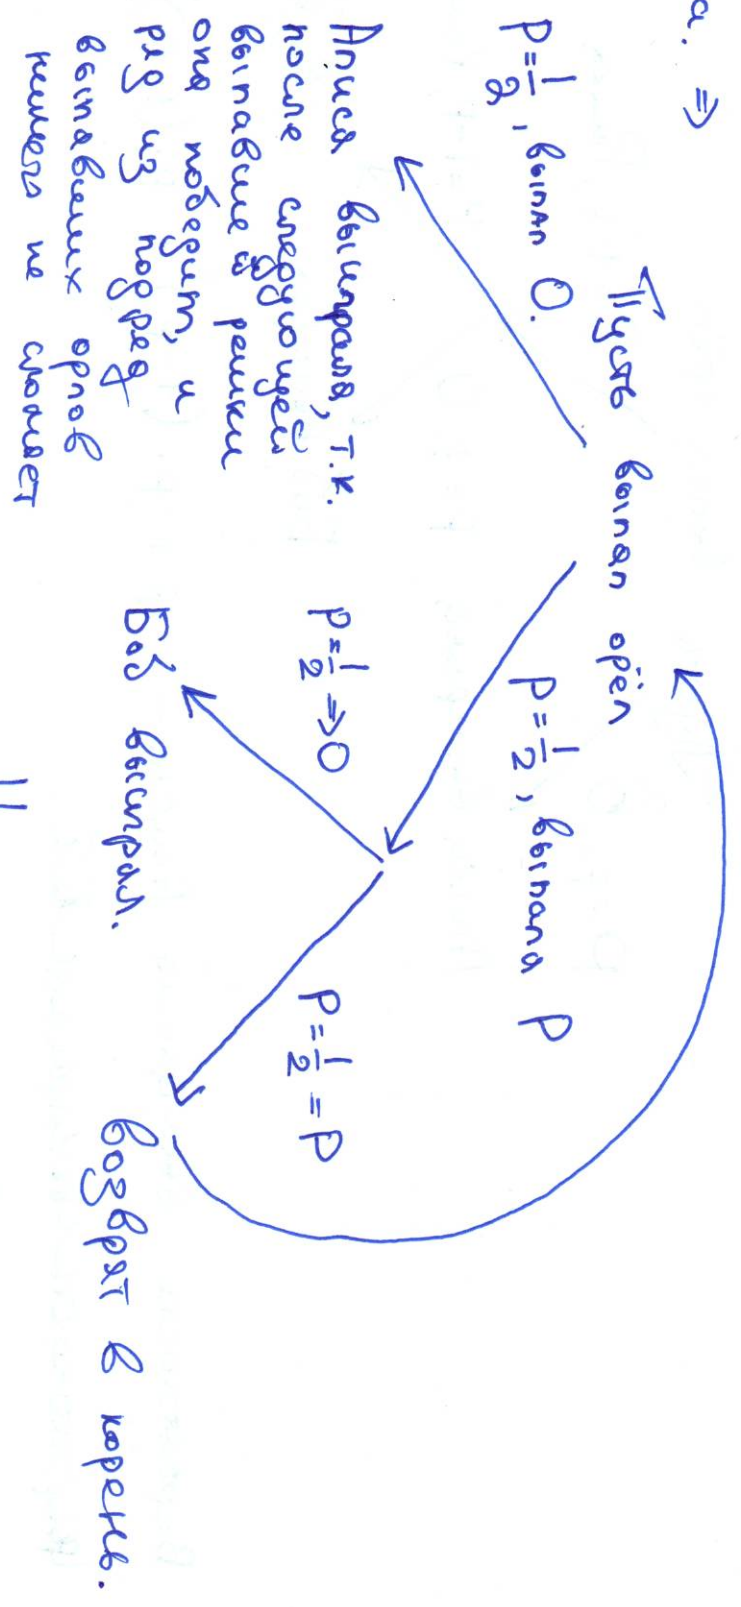 а. ⇒
Пусть выпал орёл
P=1/2, выпал О.
P=1/2, выпала Р
Алиса выиграла, т.к.
после следующей
выпавшей решки
она победит, и
ряд из подряд
выпавших орлов
ничего не сломает
P=1/2 ⇒ О
P=1/2 = Р
Боб выиграл.
Возврат в корень.